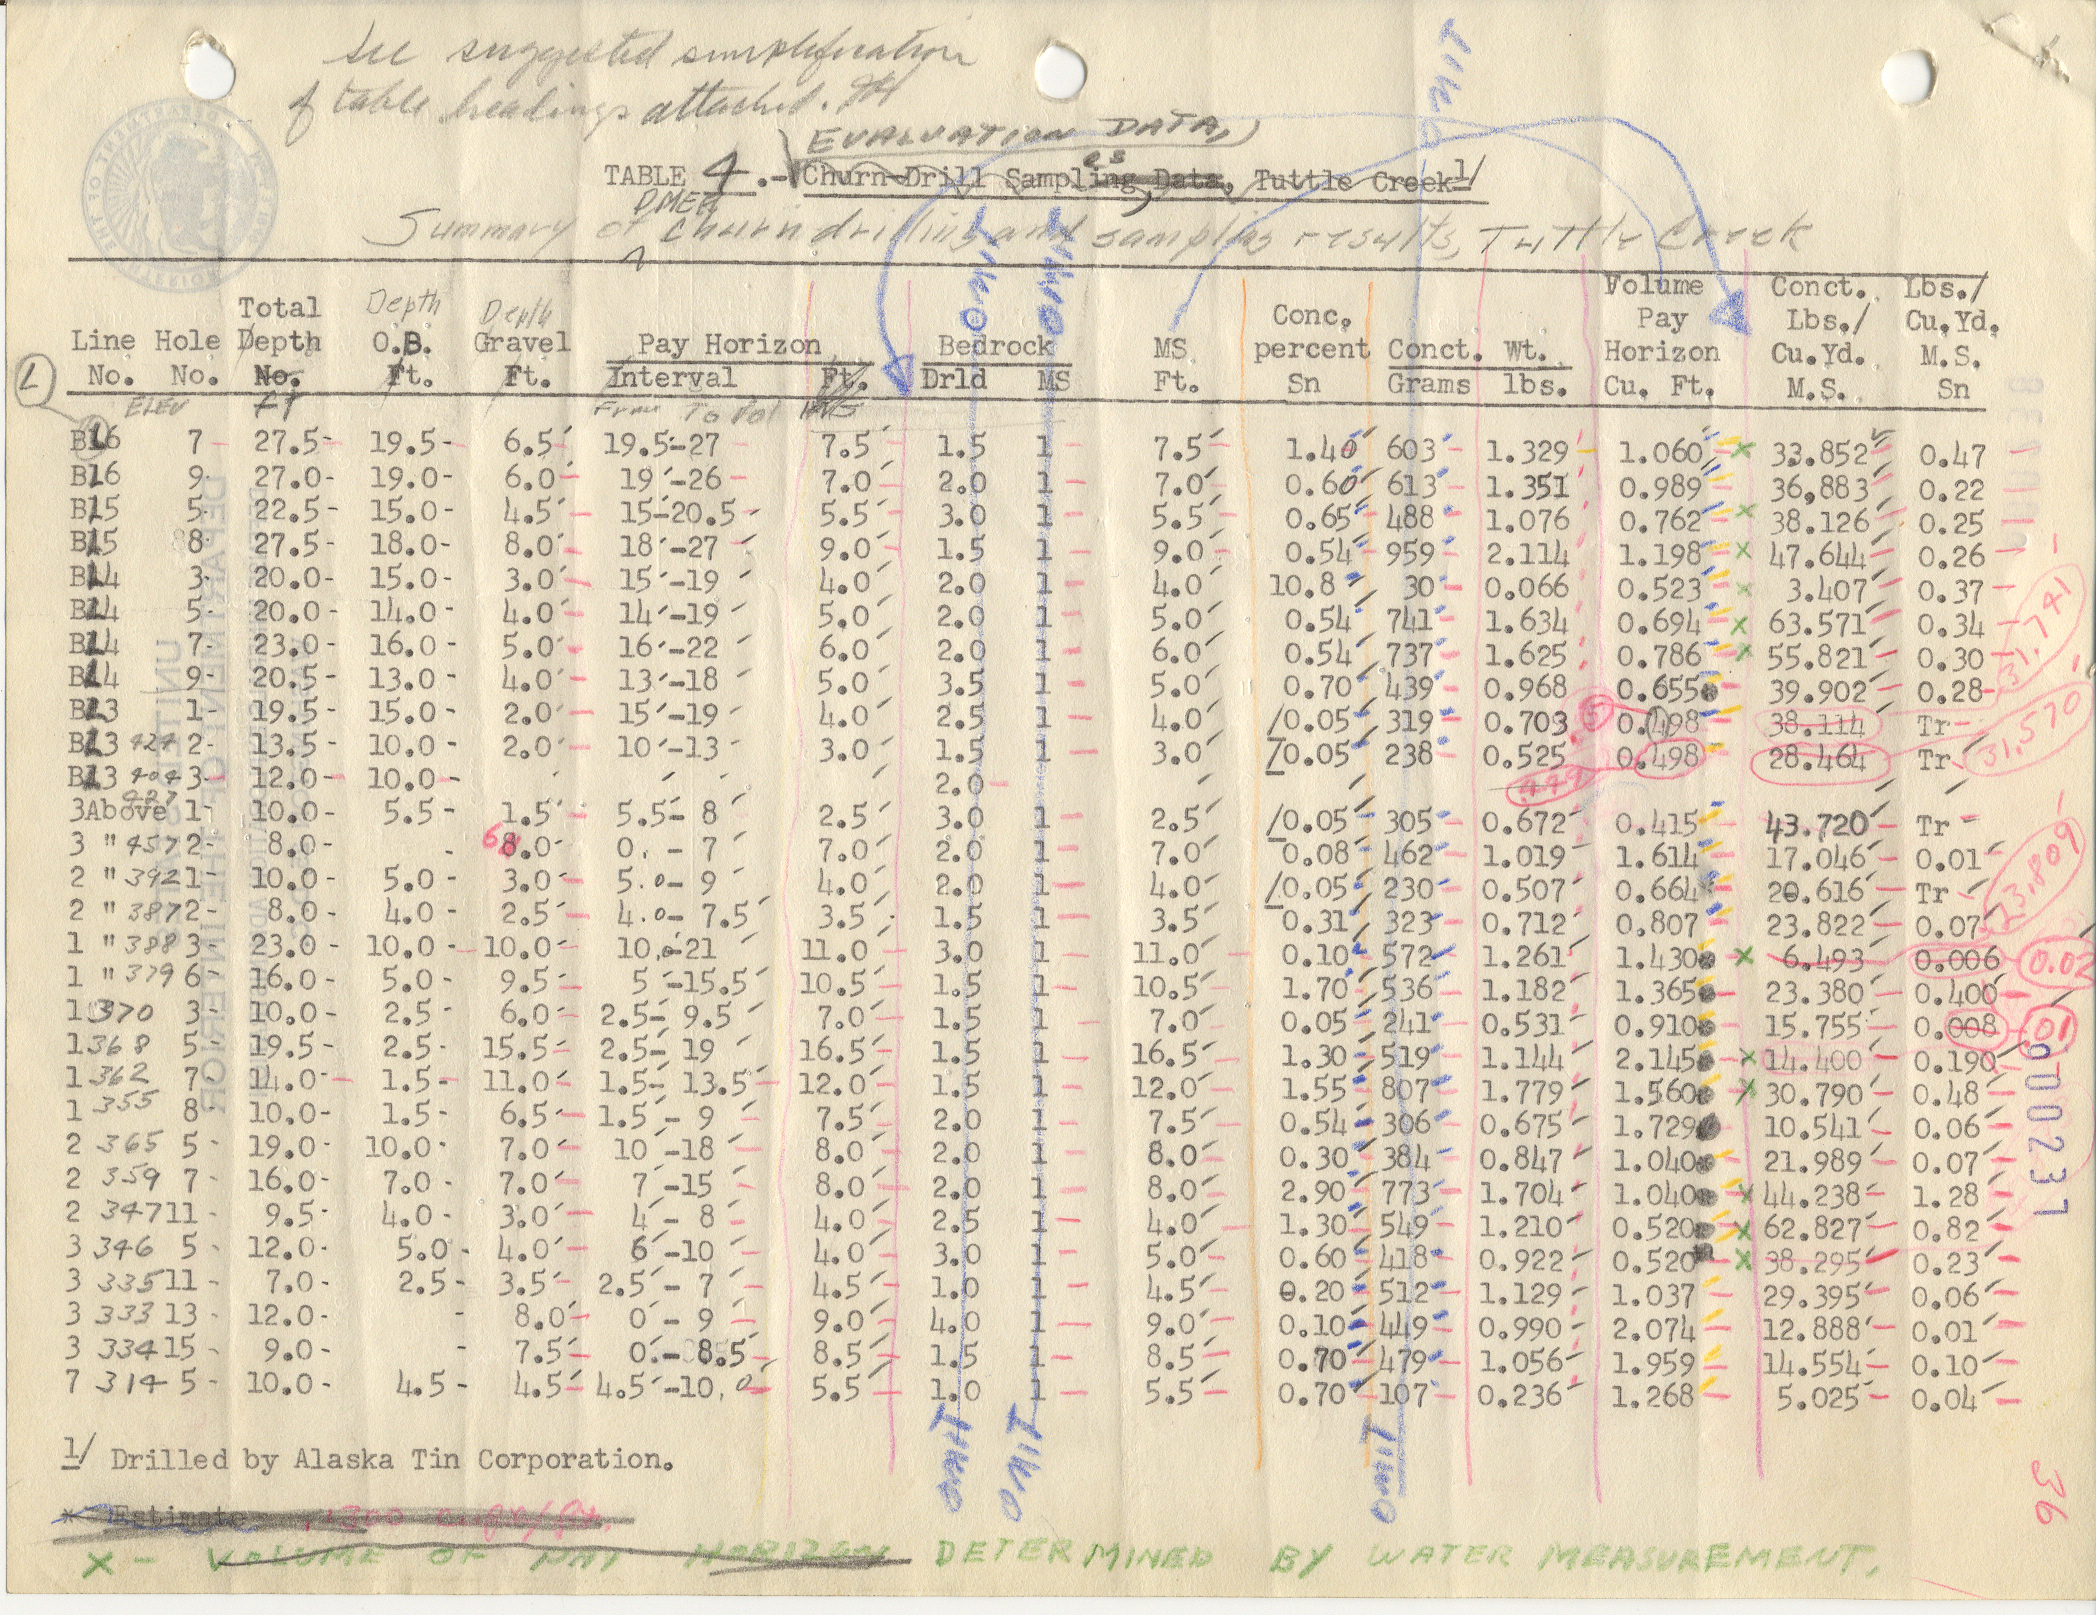 See suggested simplification
of table headings attached.
EVALUATION DATA,
TABLE 4.- Churn-Drill Sampling Data, Tuttle Creek 1/
es
DMEA
Summary of churn drilling and sampling results, Tuttle Creek
OMIT
OMIT OMIT
Total Depth Depth Volume Conct. Lbs./
Line Hole Depth O.B. Gravel Pay Horizon Bedrock MS Conc. percent Conct. Wt. Pay Horizon Lbs./ Cu. Yd. Cu. Yd. M.S.
No. No. No. Ft. Ft. Interval Ft. Drld MS Ft. Sn Grams lbs. Cu. Ft. M.S. Sn
L
ELEV FT From To
B16 7 27.5 19.5 6.5 19.5-27 7.5 1.5 1 7.5 1.40 603 1.329 1.060 x 33.852 0.47
B16 9 27.0 19.0 6.0 19 -26 7.0 2.0 1 7.0 0.60 613 1.351 0.989 36,883 0.22
B15 5 22.5 15.0 4.5 15-20.5 5.5 3.0 1 5.5 0.65 488 1.076 0.762 x 38.126 0.25
B15 8 27.5 18.0 8.0 18 -27 9.0 1.5 1 9.0 0.54 959 2.114 1.198 x 47.644 0.26
B14 3 20.0 15.0 3.0 15 -19 4.0 2.0 1 4.0 10.8 30 0.066 0.523 x 3.407 0.37
B14 5 20.0 14.0 4.0 14 -19 5.0 2.0 1 5.0 0.54 741 1.634 0.694 x 63.571 0.34
B14 7 23.0 16.0 5.0 16 -22 6.0 2.0 1 6.0 0.54 737 1.625 0.786 x 55.821 0.30
B14 9 20.5 13.0 4.0 13 -18 5.0 3.5 1 5.0 0.70 439 0.968 0.655 39.902 0.28
31.741
B13 1 19.5 15.0 2.0 15 -19 4.0 2.5 1 4.0 /0.05 319 0.703 5 0.498 38.114 Tr
B13 424 2 13.5 10.0 2.0 10 -13 3.0 1.5 1 3.0 /0.05 238 0.525 0.498 28.464 Tr
31.570
B13 404 3 12.0 10.0 2.0
.449
427
3Above 1 10.0 5.5 1.5 5.5- 8 2.5 3.0 1 2.5 /0.05 305 0.672 0.415 43.720 Tr
3 " 457 2 8.0 6 8.0 0. - 7 7.0 2.0 1 7.0 0.08 462 1.019 1.614 17.046 0.01
2 " 392 1 10.0 5.0 3.0 5.0- 9 4.0 2.0 1 4.0 /0.05 230 0.507 0.664 20.616 Tr
23.809
2 " 387 2 8.0 4.0 2.5 4.0- 7.5 3.5 1.5 1 3.5 0.31 323 0.712 0.807 23.822 0.07
1 " 388 3 23.0 10.0 10.0 10.-21 11.0 3.0 1 11.0 0.10 572 1.261 1.430 x 6.493 0.006 0.02
1 " 379 6 16.0 5.0 9.5 5 -15.5 10.5 1.5 1 10.5 1.70 536 1.182 1.365 23.380 0.400
1 370 3 10.0 2.5 6.0 2.5- 9.5 7.0 1.5 1 7.0 0.05 241 0.531 0.910 15.755 0.008 01
1 368 5 19.5 2.5 15.5 2.5- 19 16.5 1.5 1 16.5 1.30 519 1.144 2.145 x 14.400 0.190
1 362 7 14.0 1.5 11.0 1.5- 13.5 12.0 1.5 1 12.0 1.55 807 1.779 1.560 x 30.790 0.48
1 355 8 10.0 1.5 6.5 1.5 - 9 7.5 2.0 1 7.5 0.54 306 0.675 1.729 10.541 0.06
2 365 5 19.0 10.0 7.0 10 -18 8.0 2.0 1 8.0 0.30 384 0.847 1.040 21.989 0.07
2 359 7 16.0 7.0 7.0 7 -15 8.0 2.0 1 8.0 2.90 773 1.704 1.040 x 44.238 1.28
2 347 11 9.5 4.0 3.0 4 - 8 4.0 2.5 1 4.0 1.30 549 1.210 0.520 x 62.827 0.82
3 346 5 12.0 5.0 4.0 6 -10 4.0 3.0 1 5.0 0.60 418 0.922 0.520 x 38.295 0.23
3 335 11 7.0 2.5 3.5 2.5 - 7 4.5 1.0 1 4.5 0.20 512 1.129 1.037 29.395 0.06
3 333 13 12.0 8.0 0 - 9 9.0 4.0 1 9.0 0.10 449 0.990 2.074 12.888 0.01
3 334 15 9.0 7.5 0.- 8.5 8.5 1.5 1 8.5 0.70 479 1.056 1.959 14.554 0.10
7 314 5 10.0 4.5 4.5 4.5 -10.0 5.5 1.0 1 5.5 0.70 107 0.236 1.268 5.025 0.04
000237
OMIT OMIT OMIT
1/ Drilled by Alaska Tin Corporation.
36
* Estimate
X - VOLUME OF PAY HORIZON DETERMINED BY WATER MEASUREMENT.